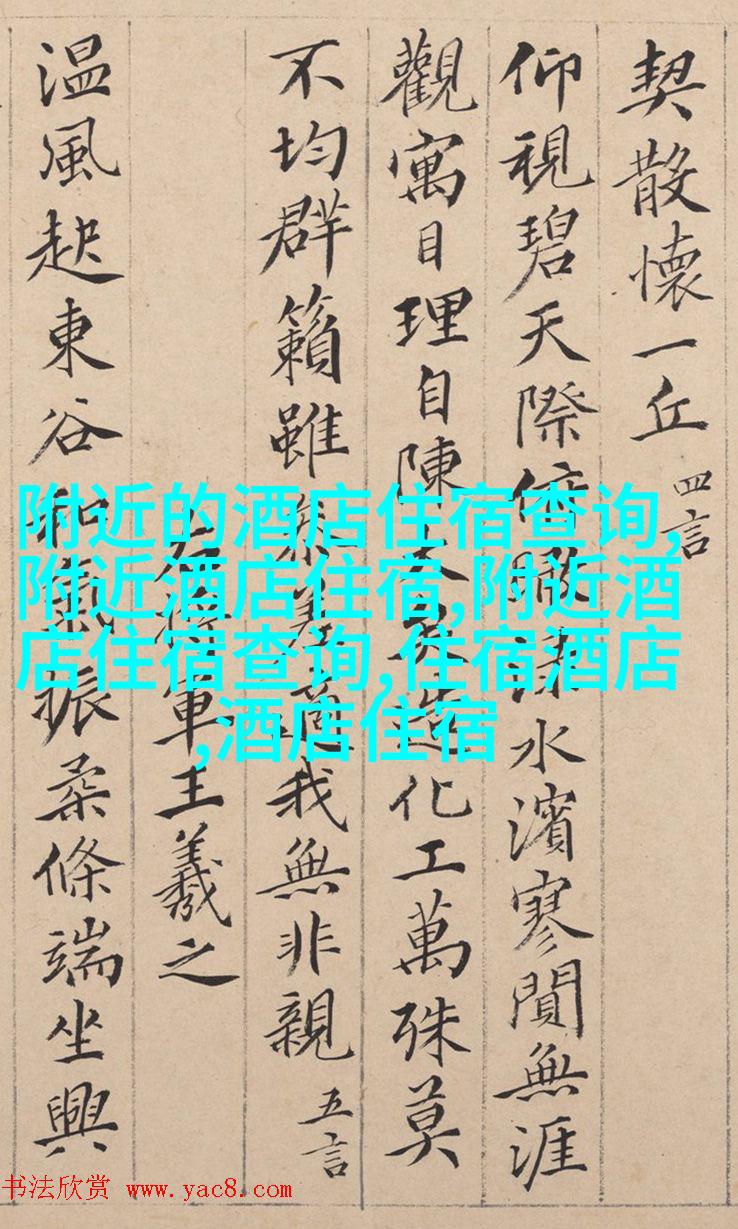 契散懷一丘 四言
仰視碧天際俯瞰渌水濱寥閴無涯
觀寓目理自陳大矣造化工萬殊莫
不均群籟雖參差適我無非親 五言
右將軍王羲之
温風起東谷和氣振柔條端坐興
附近的酒店住宿查询,
附近酒店住宿,附近酒
店住宿查询,住宿酒店
,酒店住宿
书法欣赏 www.yac8.com